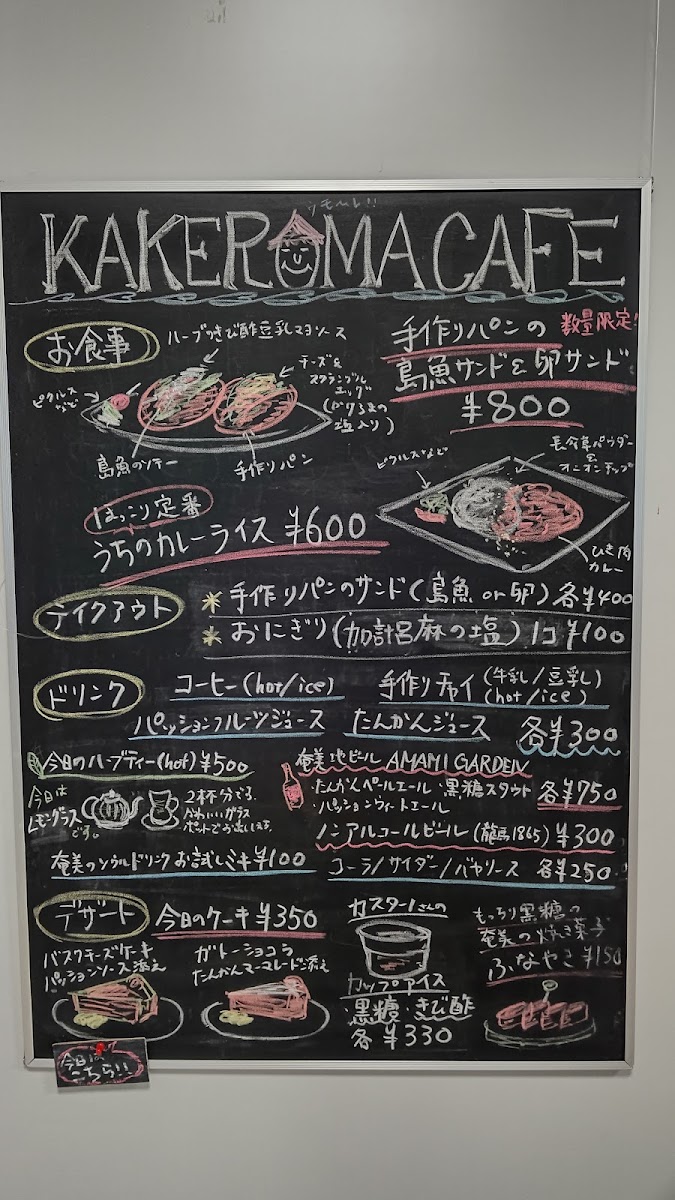 うもーれ!!
KAKEROMA CAFE
お食事
ハーブときび酢豆乳マヨソース
チーズ&
スクランブル
エッグ
(かけろまの
塩入り)
ピクルス
など
島魚のソテー
手作りパン
手作りパンの
数量限定!
島魚サンド&卵サンド
¥800
ほっこり定番
うちのカレーライス ¥600
ピクルスなど
長命草パウダー
&
オニオンチップ
ひき肉
カレー
テイクアウト
手作りパンのサンド(島魚 or 卵) 各¥400
おにぎり(加計呂麻の塩) 1コ ¥100
ドリンク
コーヒー(hot/ice)
手作りチャイ(牛乳/豆乳)
(hot/ice)
パッションフルーツジュース
たんかんジュース
各¥300
今日のハーブティー(hot) ¥500
今日は
レモングラス
です。
2杯分です。
かわいいガラス
ポットでお出しします。
奄美地ビール AMAMI GARDEN
・たんかんペールエール・黒糖スタウト
・パッションウィートエール
各¥750
ノンアルコールビール(龍馬1865) ¥300
奄美のソウルドリンク お試しミキ ¥100
コーラ/サイダー/バヤリース 各¥250
デザート
今日のケーキ ¥350
バスクチーズケーキ
パッションソース添え
ガトーショコラ
たんかんマーマレード添え
カスターりさんの
カップアイス
・黒糖・きび酢
各¥330
もっちり黒糖の
奄美の焼き菓子
ふなやき ¥150
今日は
こちら!!